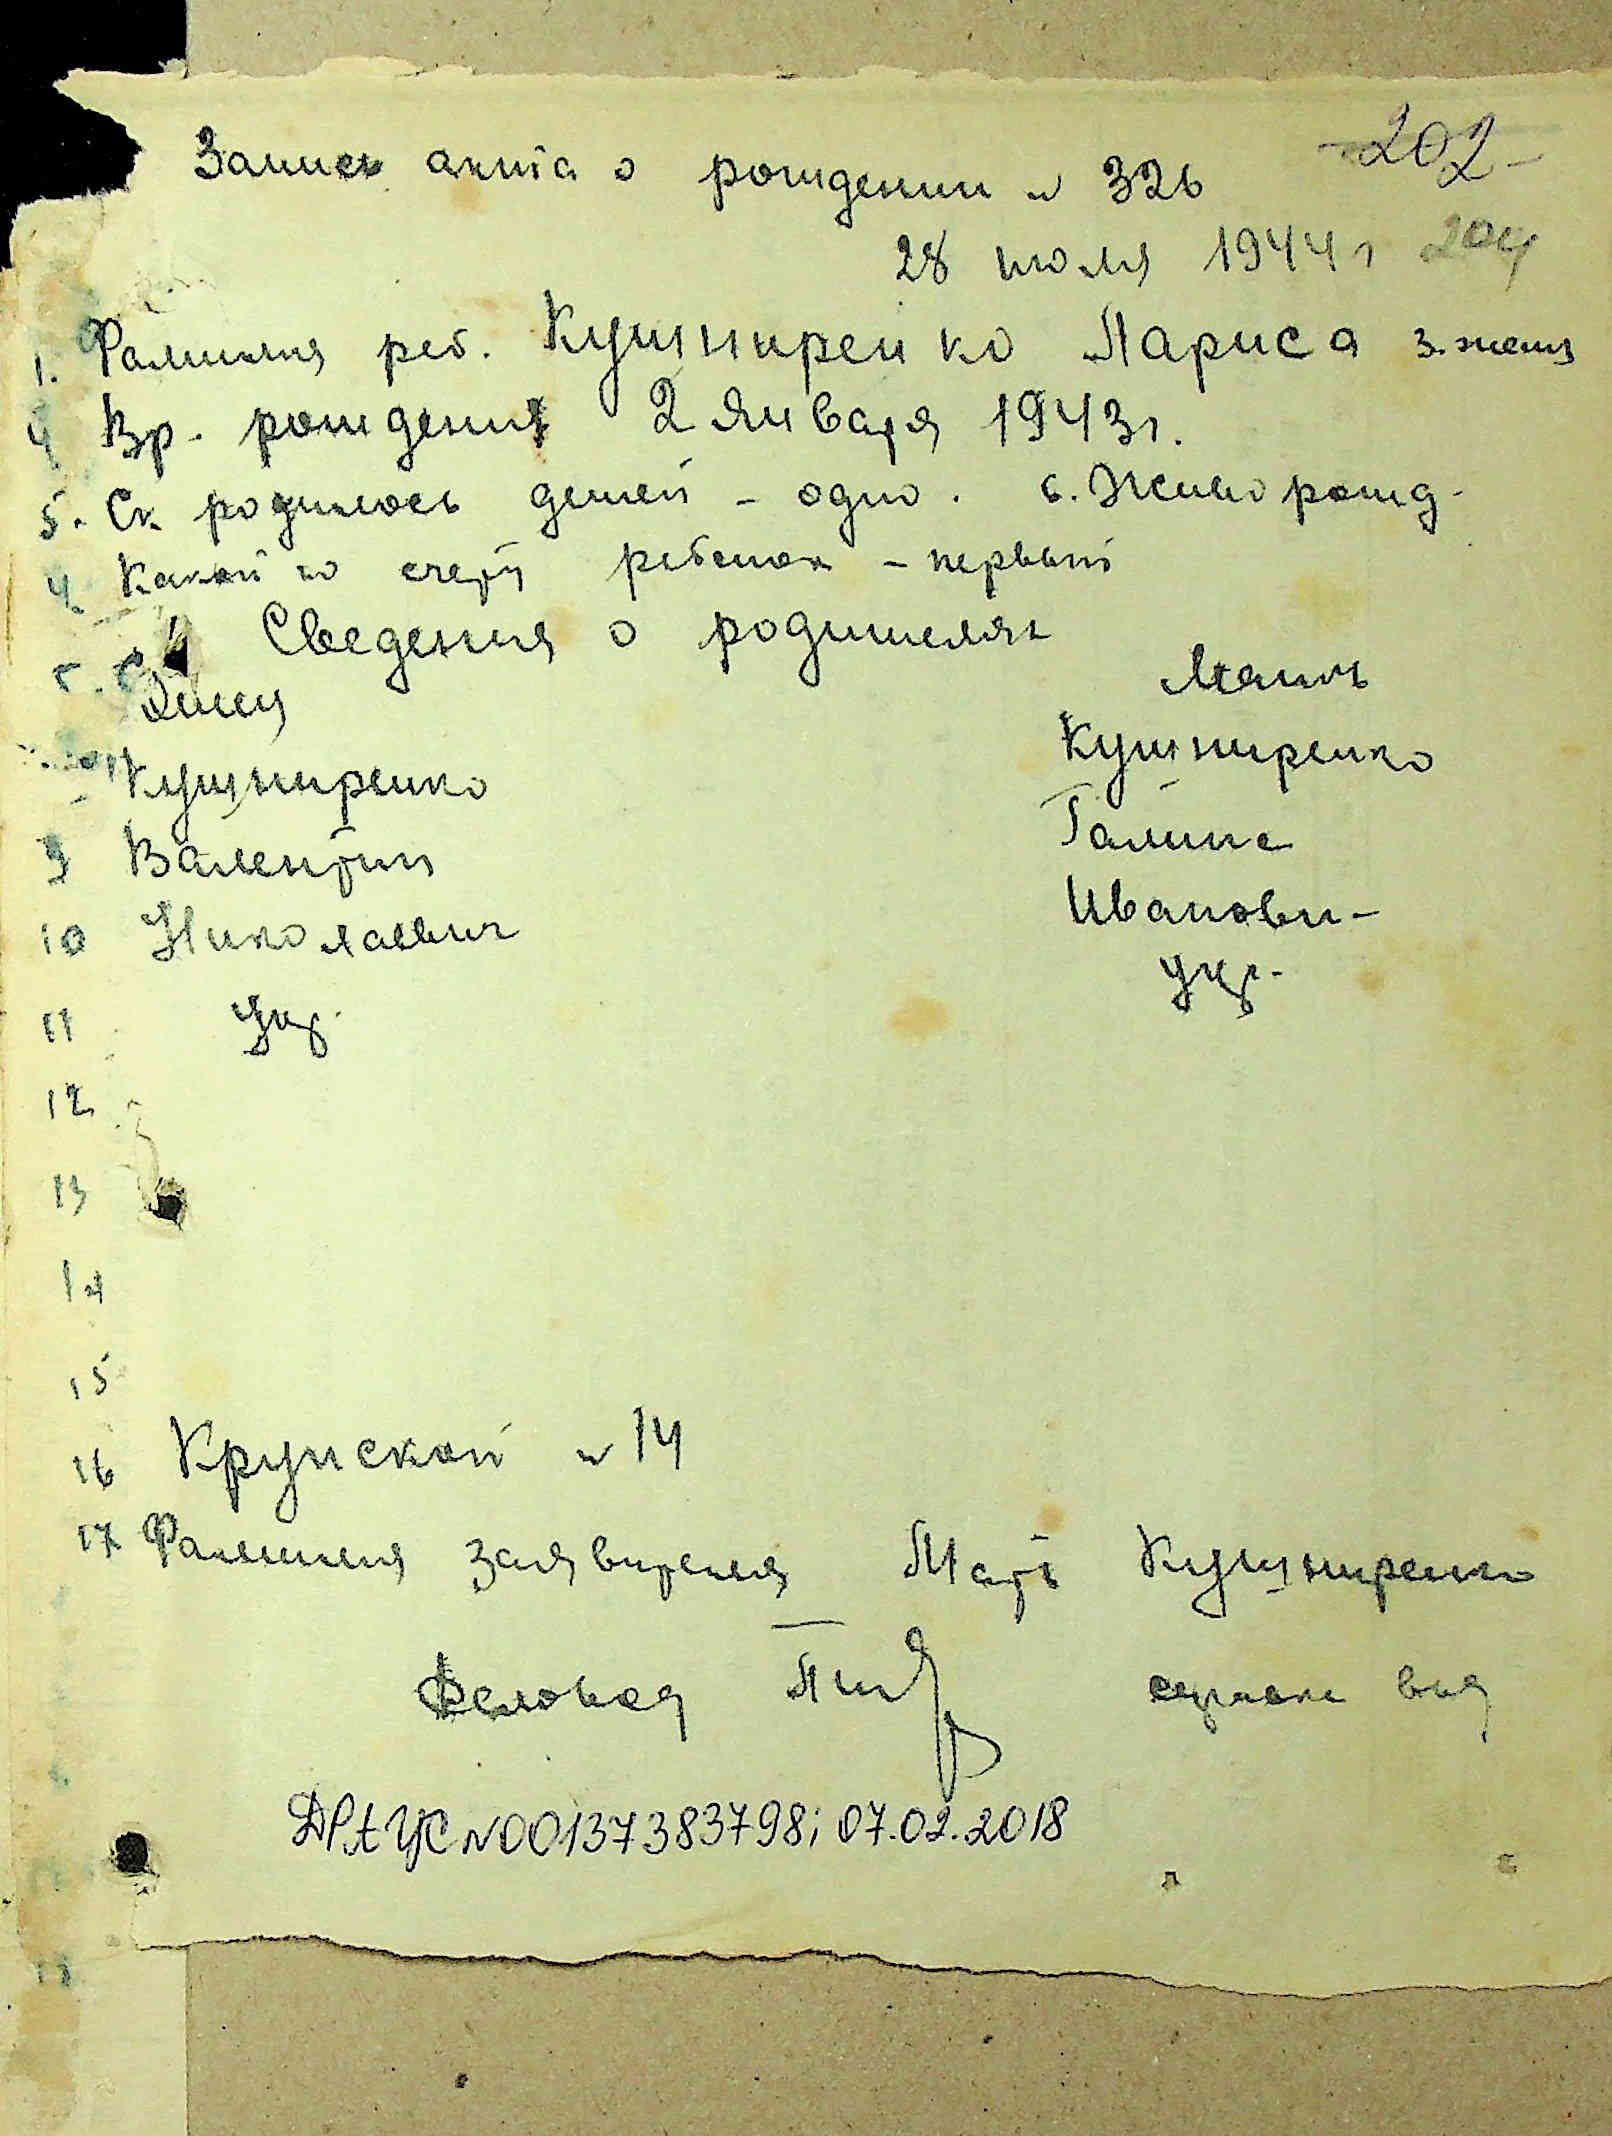 -202-
Запись акта о рождении № 326
28 июля 1944 г 204
1. Фамилия реб. Кушниренко Лариса 3. жен
4 Вр. рождения 2 Января 1943 г.
5. Ск родилось детей - одно. 6. Живорожд.
Какой по счету ребенок - первый
Сведения о родителях
Отец Мать
Кушниренко Кушниренко
9 Валентин Галина
10 Николаевич Иванови-
11 Укр. Укр.
12
13
14
15
16 Крупской № 14
17 Фамилия заявителя Мать Кушниренко
ДРАЦС N00137383798; 07.02.2018